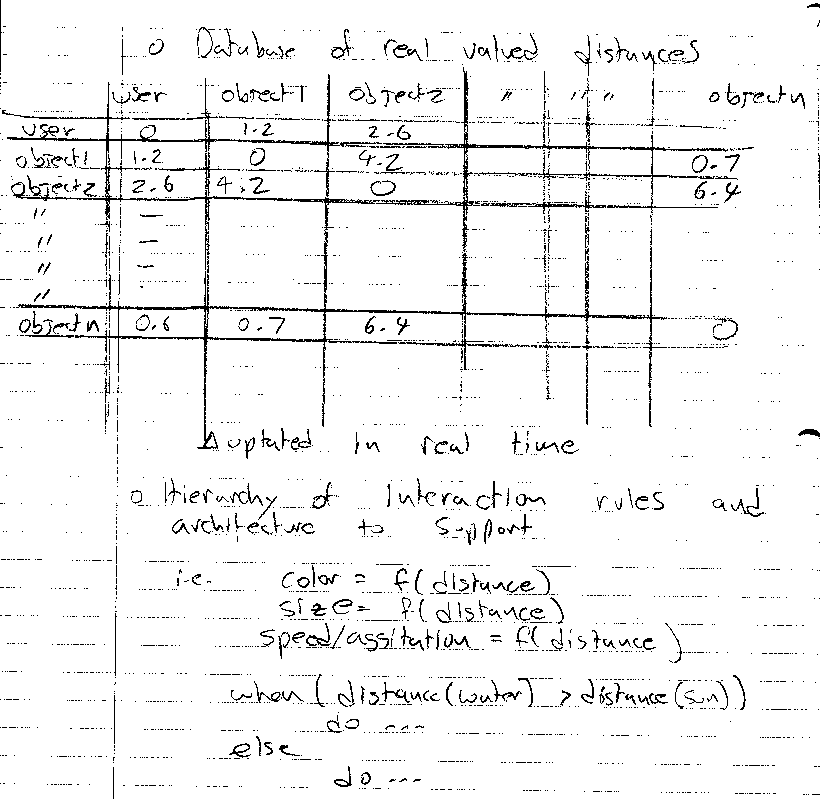 o Database of real valued distances
user object1 object2 " " " " objectn
user 0 1.2 2.6
object1 1.2 0 4.2 0.7
object2 2.6 4.2 0 6.4
" —
" —
" -
"
objectn 0.6 0.7 6.4 0
Δ uptated in real time
o Hierarchy of interaction rules and
architecture to support
i.e. color = f(distance)
size = f(distance)
speed/assitation = f(distance)
when (distance(water) > distance(sun))
do ---
else
do ---